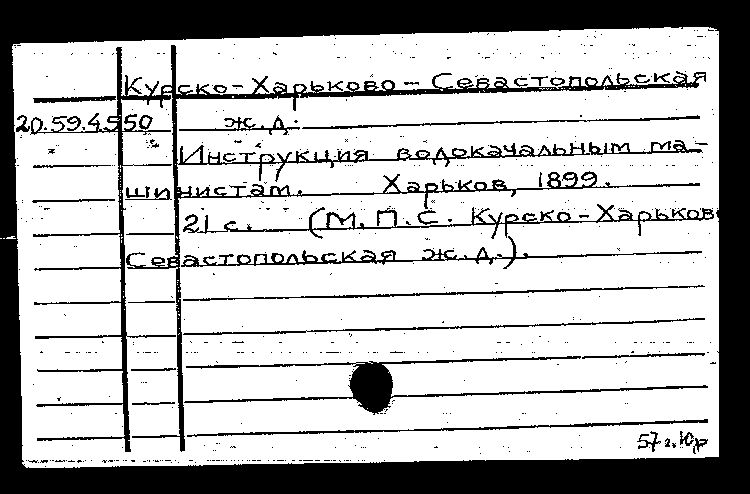 Курско-Харьково-Севастопольская
20.59.4.550 ж.д.
Инструкция водокачальным ма-
шинистам. Харьков, 1899.
21 с. (М.П.С. Курско-Харьково
Севастопольская ж.д.).
57 г.